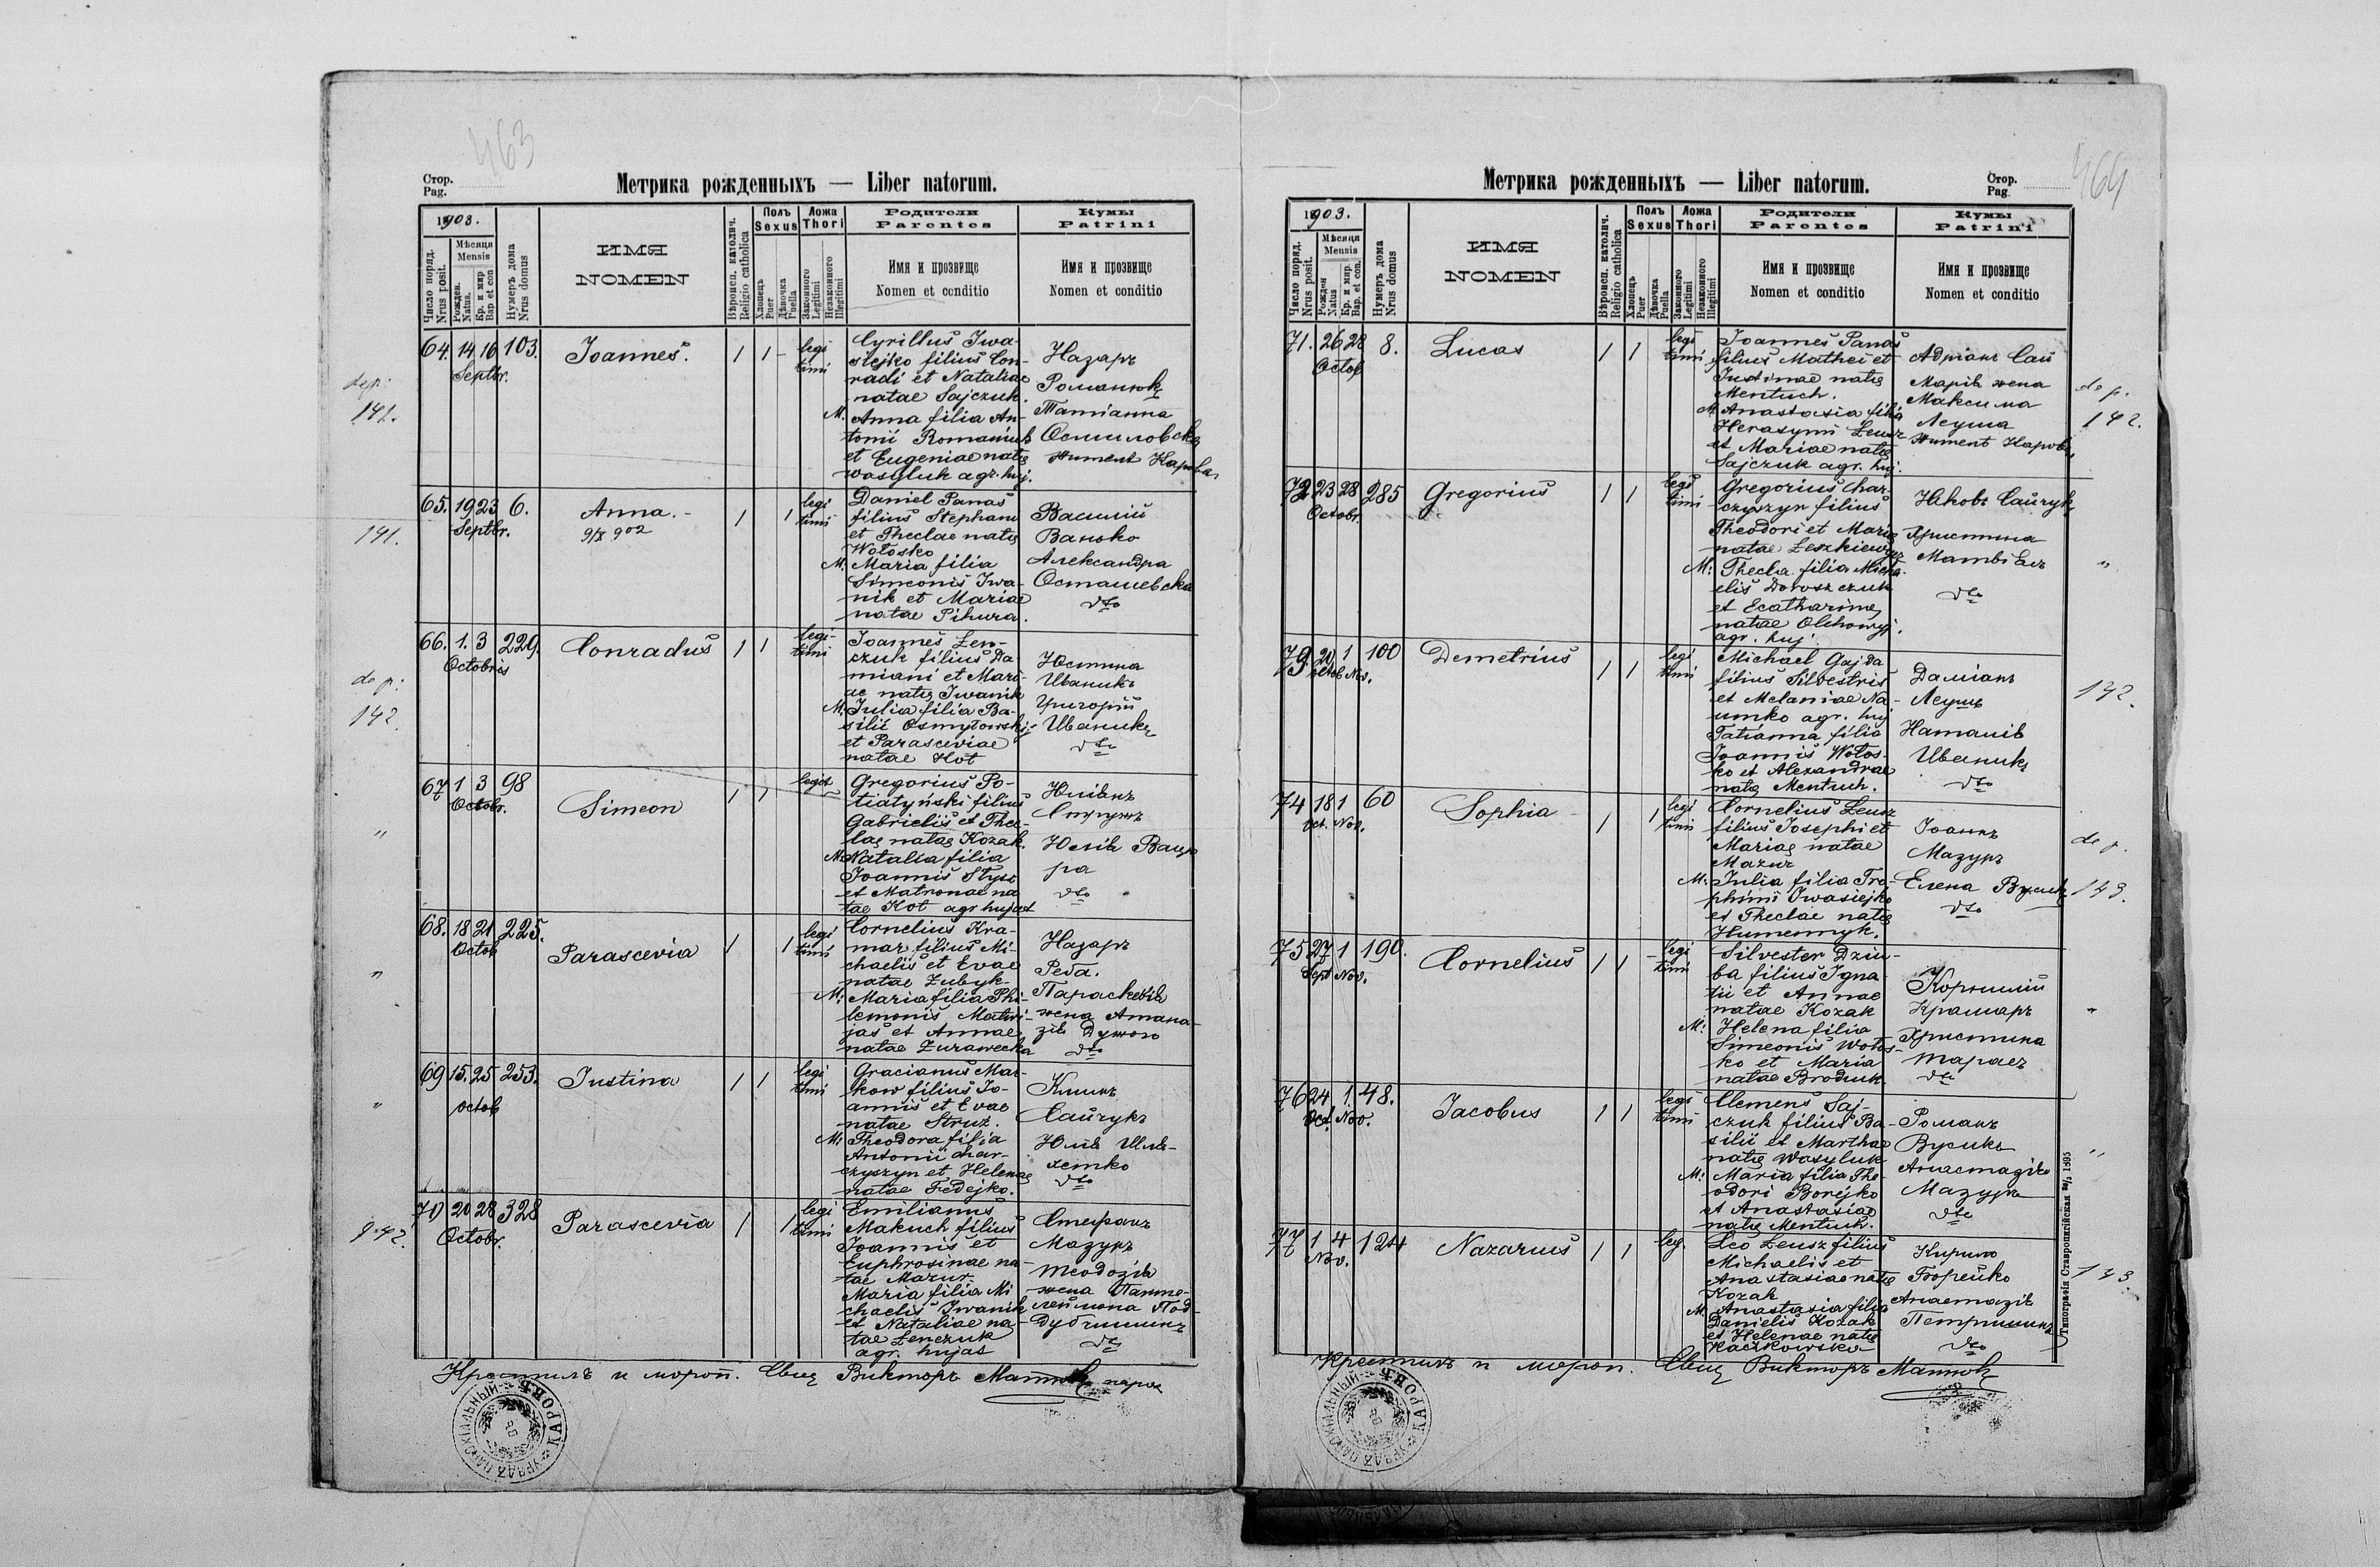 463
Стор.
Pag.
Метрика рожденныхъ — Liber natorum.
1903.
Число поряд.
Nrus posit.
Мѣсяця
Mensis
Рожден.
Natus.
Кр. и мир
Bap et con
Нумеръ дома
Nrus domus
ИМЯ
NOMEN
Вѣроисп. католич.
Religio catholica
Полъ
Sexus
Хлопецъ
Puer
Дѣвочка
Puella
Ложа
Thori
Законного
Legitimi
Незаконного
Illegitimi
Родители
Parentes
Имя и прозвище
Nomen et conditio
Кумы
Patrini
Имя и прозвище
Nomen et conditio
dep:
141.
64. 14 16 103.
Septbr.
Joannes.
1 1 -
legi
timi
Cyrillus Iwa-
siejko filius Con-
radi et Nataliae
natae Sajczuk.
M. Anna filia An-
tonii Romaniuk
et Eugeniae natę
Wasyluk agr. huj.
Назаръ
Романюк
Татіанна
Осмиловска
141.
65. 19 23 6.
Septbr.
Anna. -
9/X 902
1 1
legi
timi
Daniel Panas
filius Stephani
et Theclae natę
Wołosko
M. Maria filia
Simeonis Iwa-
nik et Mariae
natae Pihura.
Василій
Ванько
Александра
Осташевска
dto
de p:
142
66. 1. 3 229.
Octobris
Conradus
1 1
legi-
timi
Joannes Len-
czuk filius Da-
miani et Mari-
ae natę Iwanik
M. Julia filia Ba-
silii Osmyłowski
et Parasceviae
natae Kot
Юстина
Иваникъ
Григорій
Иваникъ
dto
"
67 1 3 98
Octobr.
Simeon
1 1
legit
Gregorius Po-
tiatyński filius
Gabrielis et Thec-
lae natae Kozak.
M. Natalia filia
Joannis Stysz
et Matronae na
tae Kot agr hujat
Юлія
dto
"
68. 18 21 225.
Octob
Parascevia
1 1
legi
timi
Cornelius Kra-
mar filius Mi-
chaelis et Evae
natae Zubyk.
M: Maria filia Phi-
lemonis Matwi-
jas et Annae
natae Żurawecka
Назаръ
Реба.
Параскевія
жена Атана-
dto
"
69 15. 25 253.
octob
Justina
1 1
legi
timi
Gracianus Mar-
kow filius Jo-
annis et Evae
natae Struz.
M: Theodora filia
Antonii Char-
czyszyn et Helenae
natae Fedejko.
Климъ
Сайчукъ
dto
142.
70 20 28 328
Octobr.
Parascevia
1 1
legi
timi
Emilianus
Makuch filius
Joannis et
Euphrosinae na
tae Mazur.
Maria filia Mi
chaelis Iwanik
et Nataliae na-
tae Lenczuk
agr. hujas
Стефанъ
Мазуръ
Теодозія
жена Панте-
леймона Под-
dto
Крестилъ и мироп. Свящ Викторъ Матюк парох
464
Стор.
Pag.
Метрика рожденныхъ — Liber natorum.
1903.
Число поряд.
Nrus posit.
Мѣсяця
Mensis
Рожден
Natus
Кр. и мир.
Bap. et con.
Нумеръ дома
Nrus domus
ИМЯ
NOMEN
Вѣроисп. католич.
Religio catholica
Полъ
Sexus
Хлопецъ
Puer
Дѣвочка
Puella
Ложа
Thori
Законного
Legitimi
Незаконного
Illegitimi
Родители
Parentes
Имя и прозвище
Nomen et conditio
Кумы
Patrini
Имя и прозвище
Nomen et conditio
71. 26 28 8.
Octob
Lucas
1 1
legi
timi
Joannes Panas
filius Mathei et
Justinae natę
Mentuch.
M. Anastasia filia
Herasymi Leusz
et Mariae natę
Sajczuk agr. huj.
Адріанъ Сай
Марія жена
Максима
Леуша
de p.
142.
72. 23 28 285
Octobr.
Gregorius
1 1
legi
timi
Gregorius Char-
czyszyn filius
Theodori et Marię
natae Leszkiewicz
M: Thecla filia Micha
elis Doroszczuk
et Ecatharinę
natae Olchowyj.
agr. huj.
Яковъ Сайчукъ
Христина
dto
"
73. 20 1 100
Octob Nov.
Demetrius
1 1
legi
timi
Michael Gajda
filius Silvestris
et Melaniae Na-
umko agr. huj
Tatianna filia
Joannis Wołos-
ko et Alexandrae
natę Mentuch.
Даміанъ
Леушъ
Наталія
Иваникъ
dto
142.
74 18 1 60
Oct. Nov.
Sophia
1 1
legi
timi
Cornelius Leusz
filius Josephi et
Mariae natae
Mazur
M: Julia filia Tro-
phimi Iwasiejko
et Theclae natę
Humennyk.
Іоаннъ
Мазуръ
Елена Вусикъ
dto
de p.
143.
75. 27 1 190.
Sept Nov.
Cornelius
1 1
legi
timi
Silvester Dziu-
ba filius Igna-
tii et Annae
natae Kozak
M: Helena filia
Simeonis Wołos-
ko et Maria
natae Brodiuk.
Корнилій
Крамаръ
Христина
Тарасъ
dto
"
76 24 1. 48.
Oct. Nov.
Jacobus
1 1
legi
timi
Clemens Saj-
czuk filius Ba-
silii et Marthae
natę Wasyluk
M: Maria filia The-
odori Borejko
et Anastasiae
natę Mentuch.
Романъ
Вусикъ
Анастазія
Мазуръ
dto
"
77 1 4 124
Nov.
Nazarius
1 1
leg.
Leo Leusz filius
Michaelis et
Anastasiae natę
Kozak
M. Anastasia filia
Danielis Kozak
et Helenae natę
Kaczkowska
Кирило
Борейко
Анастазія
Петришинъ
dto
143
Крестилъ и мироп. Свящ Викторъ Матюк
Типографія Ставропигійская
1895